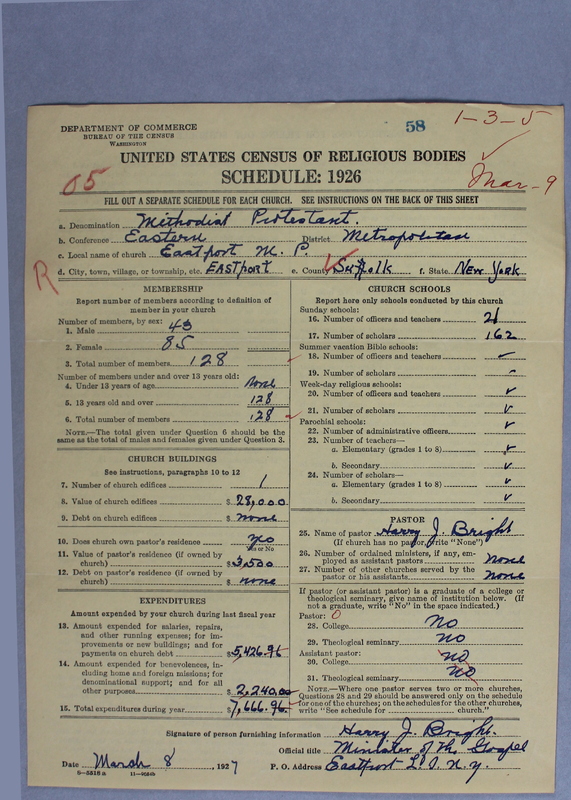 58
1-3-5
DEPARTMENT OF COMMERCE
BUREAU OF THE CENSUS
WASHINGTON
UNITED STATES CENSUS OF RELIGIOUS BODIES
SCHEDULE: 1926
05
Mar-9
FILL OUT A SEPARATE SCHEDULE FOR EACH CHURCH. SEE INSTRUCTIONS ON THE BACK OF THIS SHEET
a. Denomination Methodist Protestant.
b. Conference Eastern District Metropolitan
c. Local name of church Eastport M. P.
d. City, town, village, or township, etc. EASTPORT e. County Suffolk f. State NEW YORK
R
MEMBERSHIP
Report number of members according to definition of
member in your church
Number of members, by sex:
1. Male 43
2. Female 85
3. Total number of members 128
Number of members under and over 13 years old:
4. Under 13 years of age None
5. 13 years old and over 128
6. Total number of members 128
NOTE.—The total given under Question 6 should be
the same as the total of males and females given under Question 3.
CHURCH BUILDINGS
See instructions, paragraphs 10 to 12
7. Number of church edifices 1
8. Value of church edifices $ 28,000.
9. Debt on church edifices $ none
10. Does church own pastor's residence yes
Yes or No
11. Value of pastor's residence (if owned by
church) $ 3,500
12. Debt on pastor's residence (if owned by
church) $ none
EXPENDITURES
Amount expended by your church during last fiscal year
13. Amount expended for salaries, repairs,
and other running expenses; for im-
provements or new buildings; and for
payments on church debt $ 5,426.96
14. Amount expended for benevolences, in-
cluding home and foreign missions; for
denominational support; and for all
other purposes $ 2,240.00
15. Total expenditures during year $ 7,666.96
CHURCH SCHOOLS
Report here only schools conducted by this church
Sunday schools:
16. Number of officers and teachers 21
17. Number of scholars 162
Summer vacation Bible schools:
18. Number of officers and teachers
19. Number of scholars
Week-day religious schools:
20. Number of officers and teachers
21. Number of scholars
Parochial schools:
22. Number of administrative officers
23. Number of teachers—
a. Elementary (grades 1 to 8)
b. Secondary
24. Number of scholars—
a. Elementary (grades 1 to 8)
b. Secondary
PASTOR
25. Name of pastor Harry J. Bright
(If church has no pastor, write "None")
26. Number of ordained ministers, if any, em-
ployed as assistant pastors None
27. Number of other churches served by the
pastor or his assistants None
If pastor (or assistant pastor) is a graduate of a college or
theological seminary, give name of institution below. (If
not a graduate, write "No" in the space indicated.)
Pastor: 0
28. College no
29. Theological seminary no
Assistant pastor:
30. College no
31. Theological seminary no
NOTE.—Where one pastor serves two or more churches,
Questions 28 and 29 should be answered only on the schedule
for one of the churches; on the schedules for the other churches,
write "See schedule for church."
Signature of person furnishing information Harry J. Bright.
Official title Minister of the Gospel
Date March 8, 1927 P. O. Address Eastport L. I. N. Y.
8-5516a 11-9084b